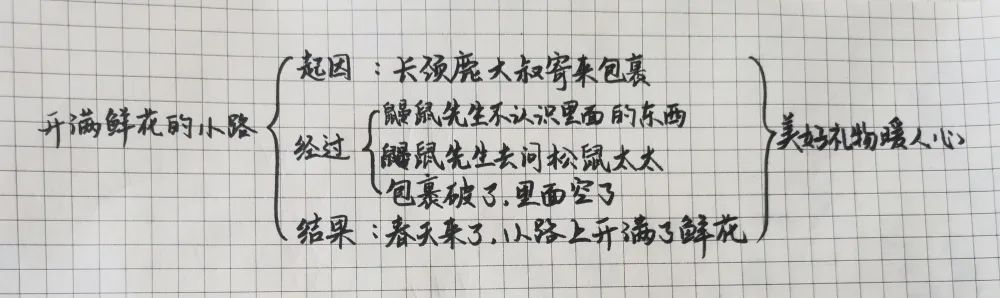 起因：长颈鹿大叔寄来包裹
鼹鼠先生不认识里面的东西
开满鲜花的小路
经过
鼹鼠先生去问松鼠太太
美好礼物暖人心
包裹破了，里面空了
结果：春天来了，小路上开满了鲜花